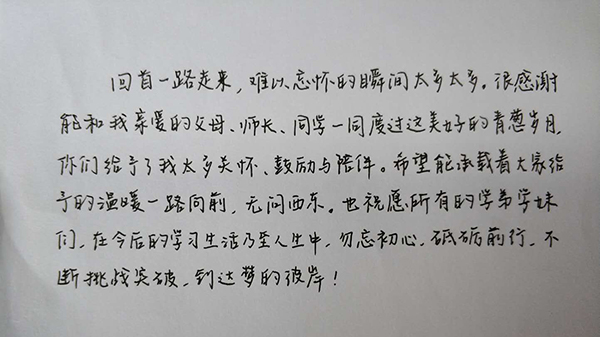 回首一路走来，难以忘怀的瞬间太多太多。很感谢
能和我亲爱的父母、师长、同学一同度过这美好的青葱岁月，
你们给予了我太多关怀、鼓励与陪伴。希望能承载着大家给
予的温暖一路向前，无问西东。也祝愿所有的学弟学妹
们，在今后的学习生活乃至人生中，勿忘初心，砥砺前行，不
断挑战突破，到达梦的彼岸！